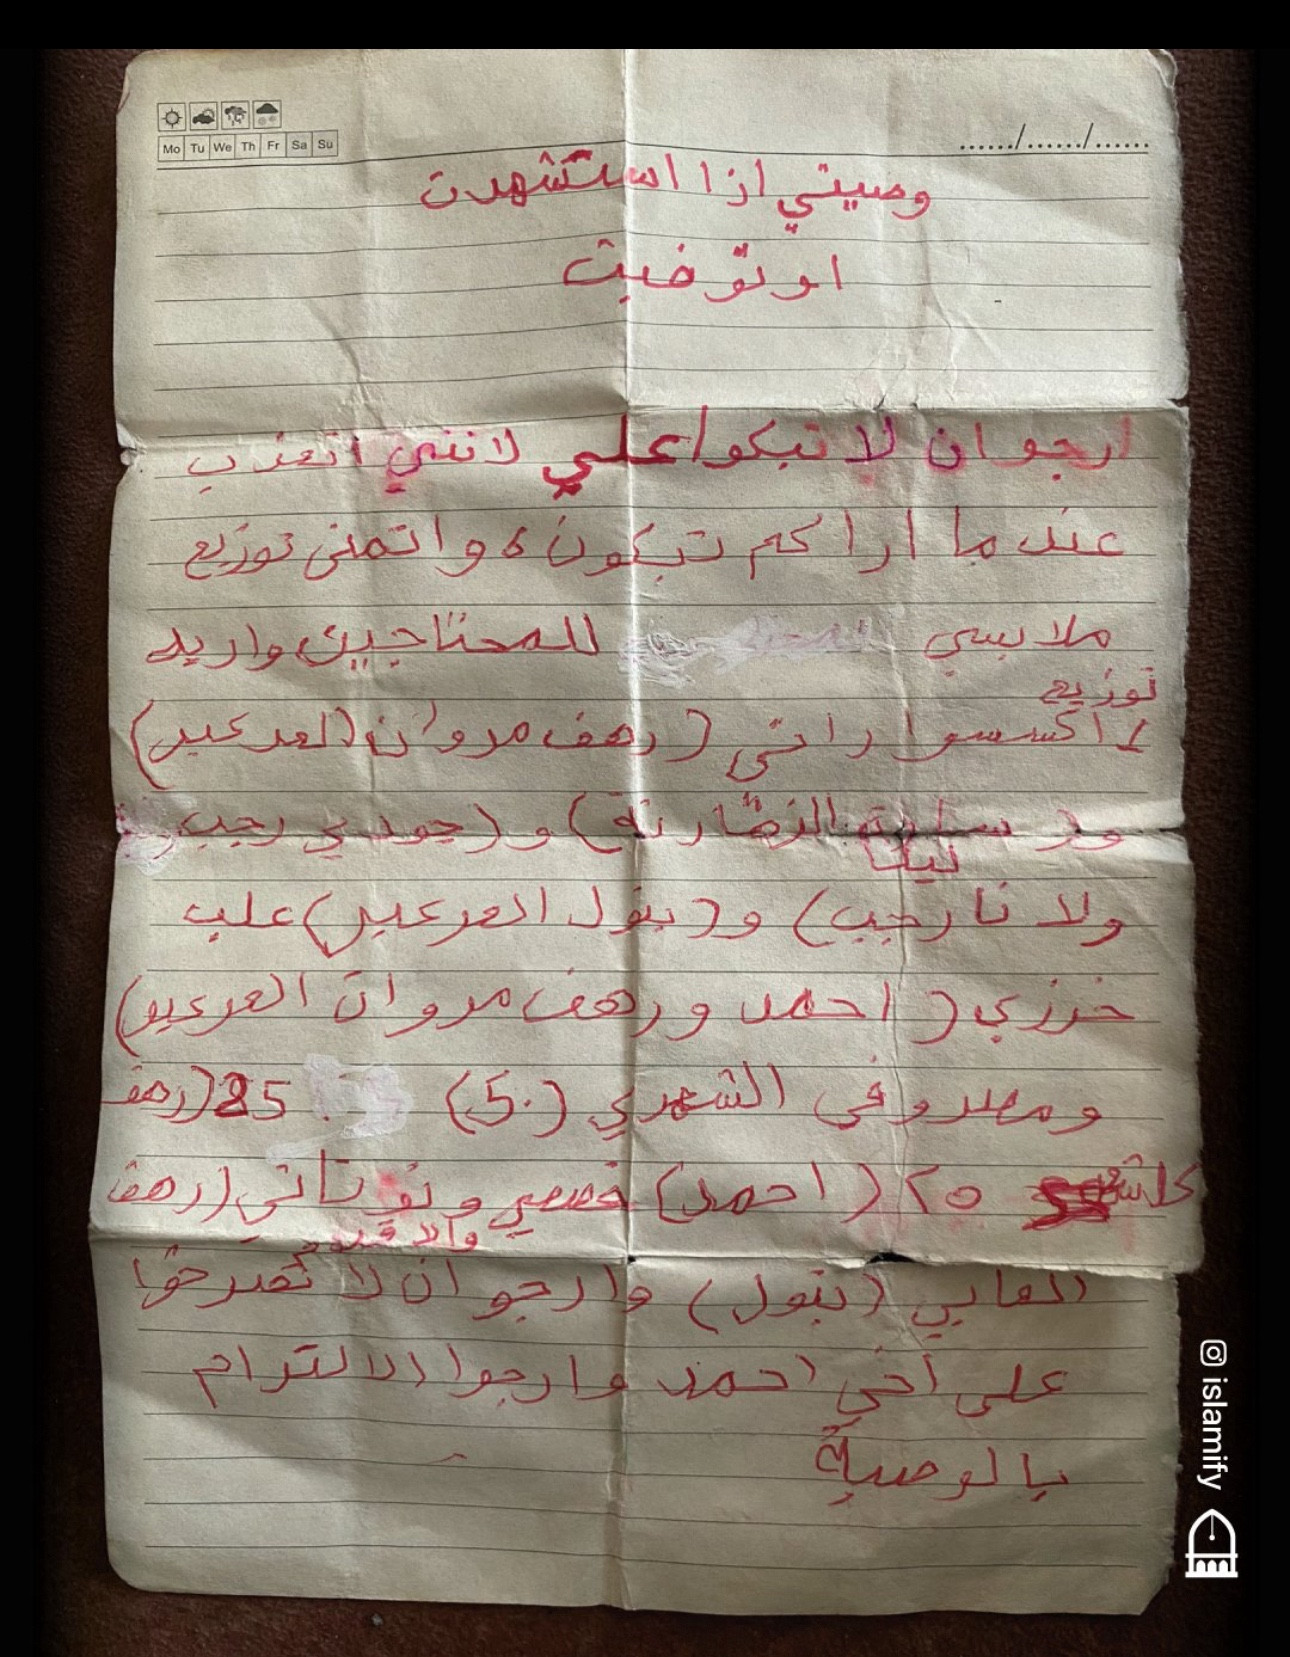 Mo Tu We Th Fr Sa Su
....../....../......
وصيتي اذا استشهدت
او توفيت
ارجو ان لا تبكوا علي لانني اتعذب
عند ما اراكم تبكون، واتمنى توزيع
ملابسي للمحتاجين واريد
توزيع
اكسسواراتي (رهف مروان العرعير)
و( النضارية) و(جودي رجب)
ليانا
ولانا رجب) و(بتول العرعير) علب
خرزي (احمد ورهف مروان العرعير)
ومصروفي الشهري (5٠) 25(رهف
٢٥ (احمد) قصصي و (رهف
والا
العابي (بتول) وارجو ان لا تصرخوا
على اخي احمد وارجوا الالتزام
بالوصية
islamify